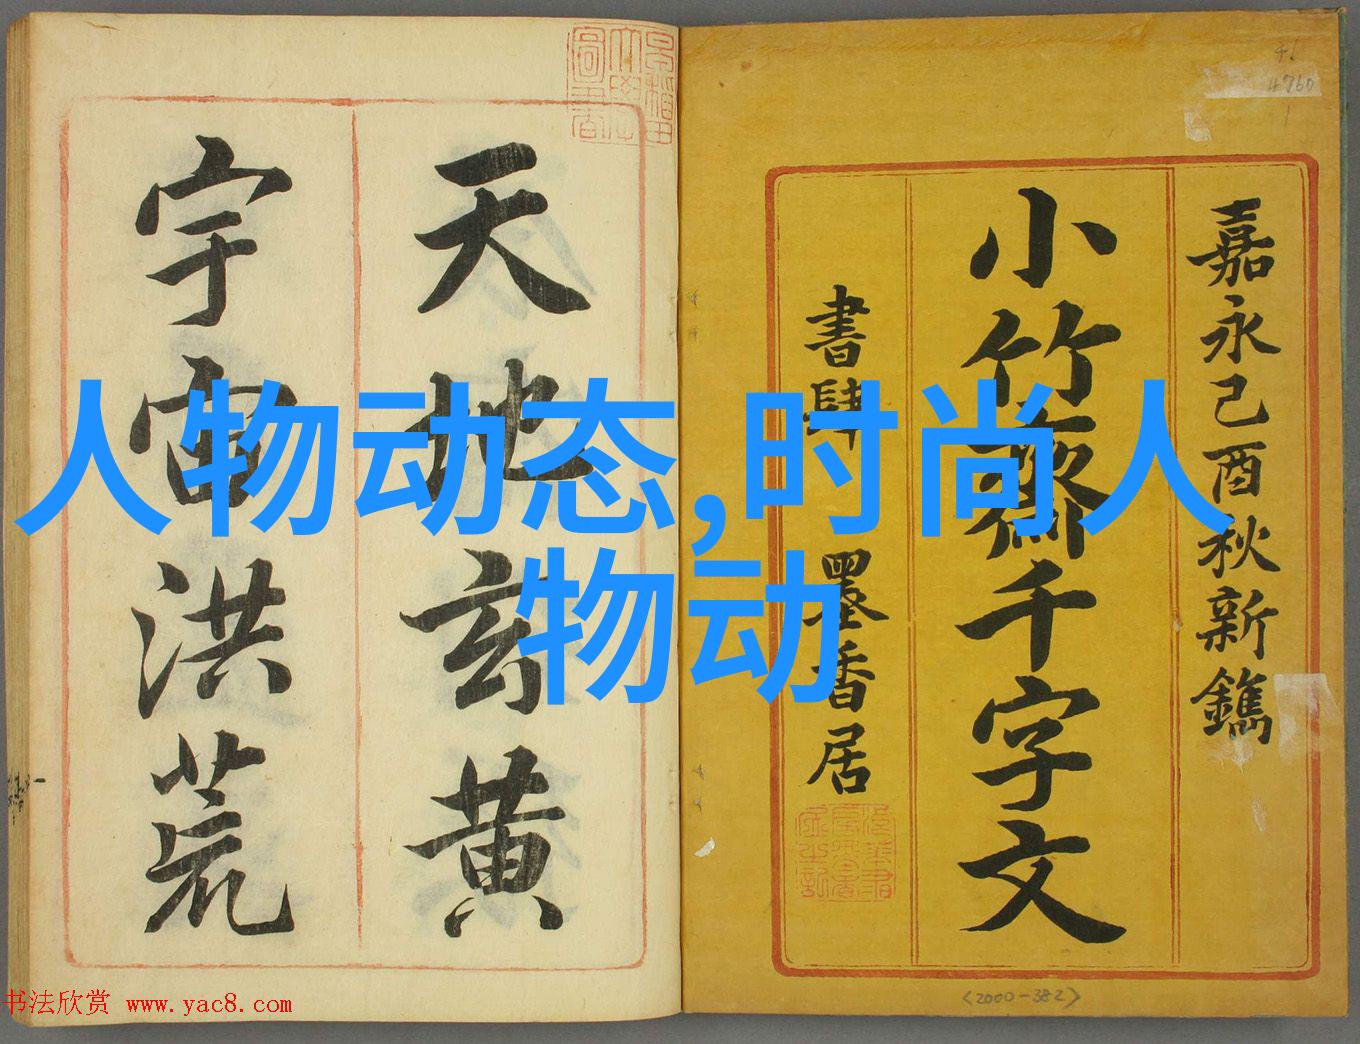 嘉永己酉秋新鐫
小竹齋千字文
書肆 墨香居
天地玄黃
宇宙洪荒
人物动态,时尚人
物动
书法欣赏 www.yac8.com
4760
<2000-382>